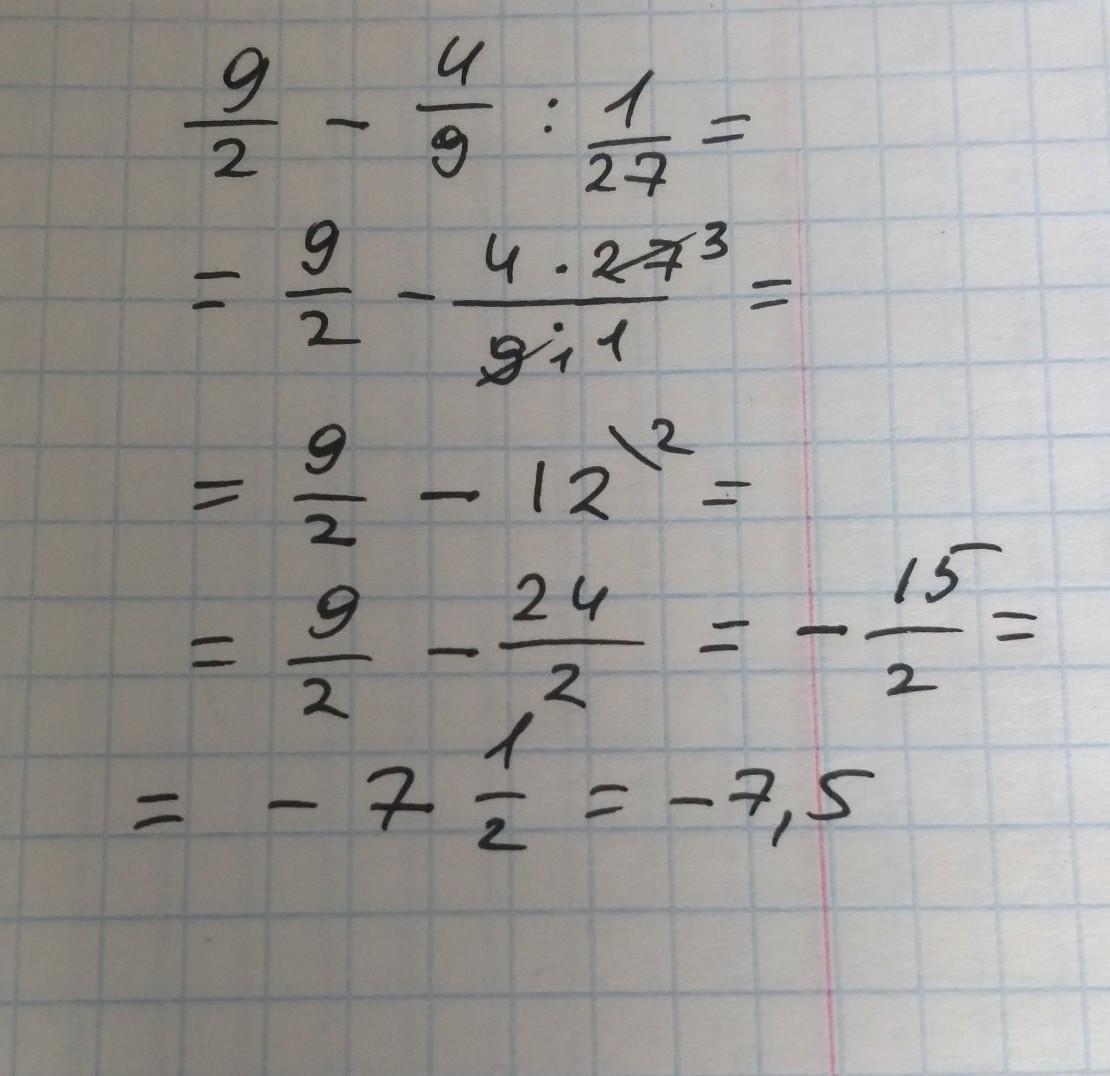 9/2 - 4/9 : 1/27 =
= 9/2 - 4 · 27 3 / 9 1 · 1 =
= 9/2 - 12 \2 =
= 9/2 - 24/2 = - 15/2 =
= - 7 1/2 = - 7,5